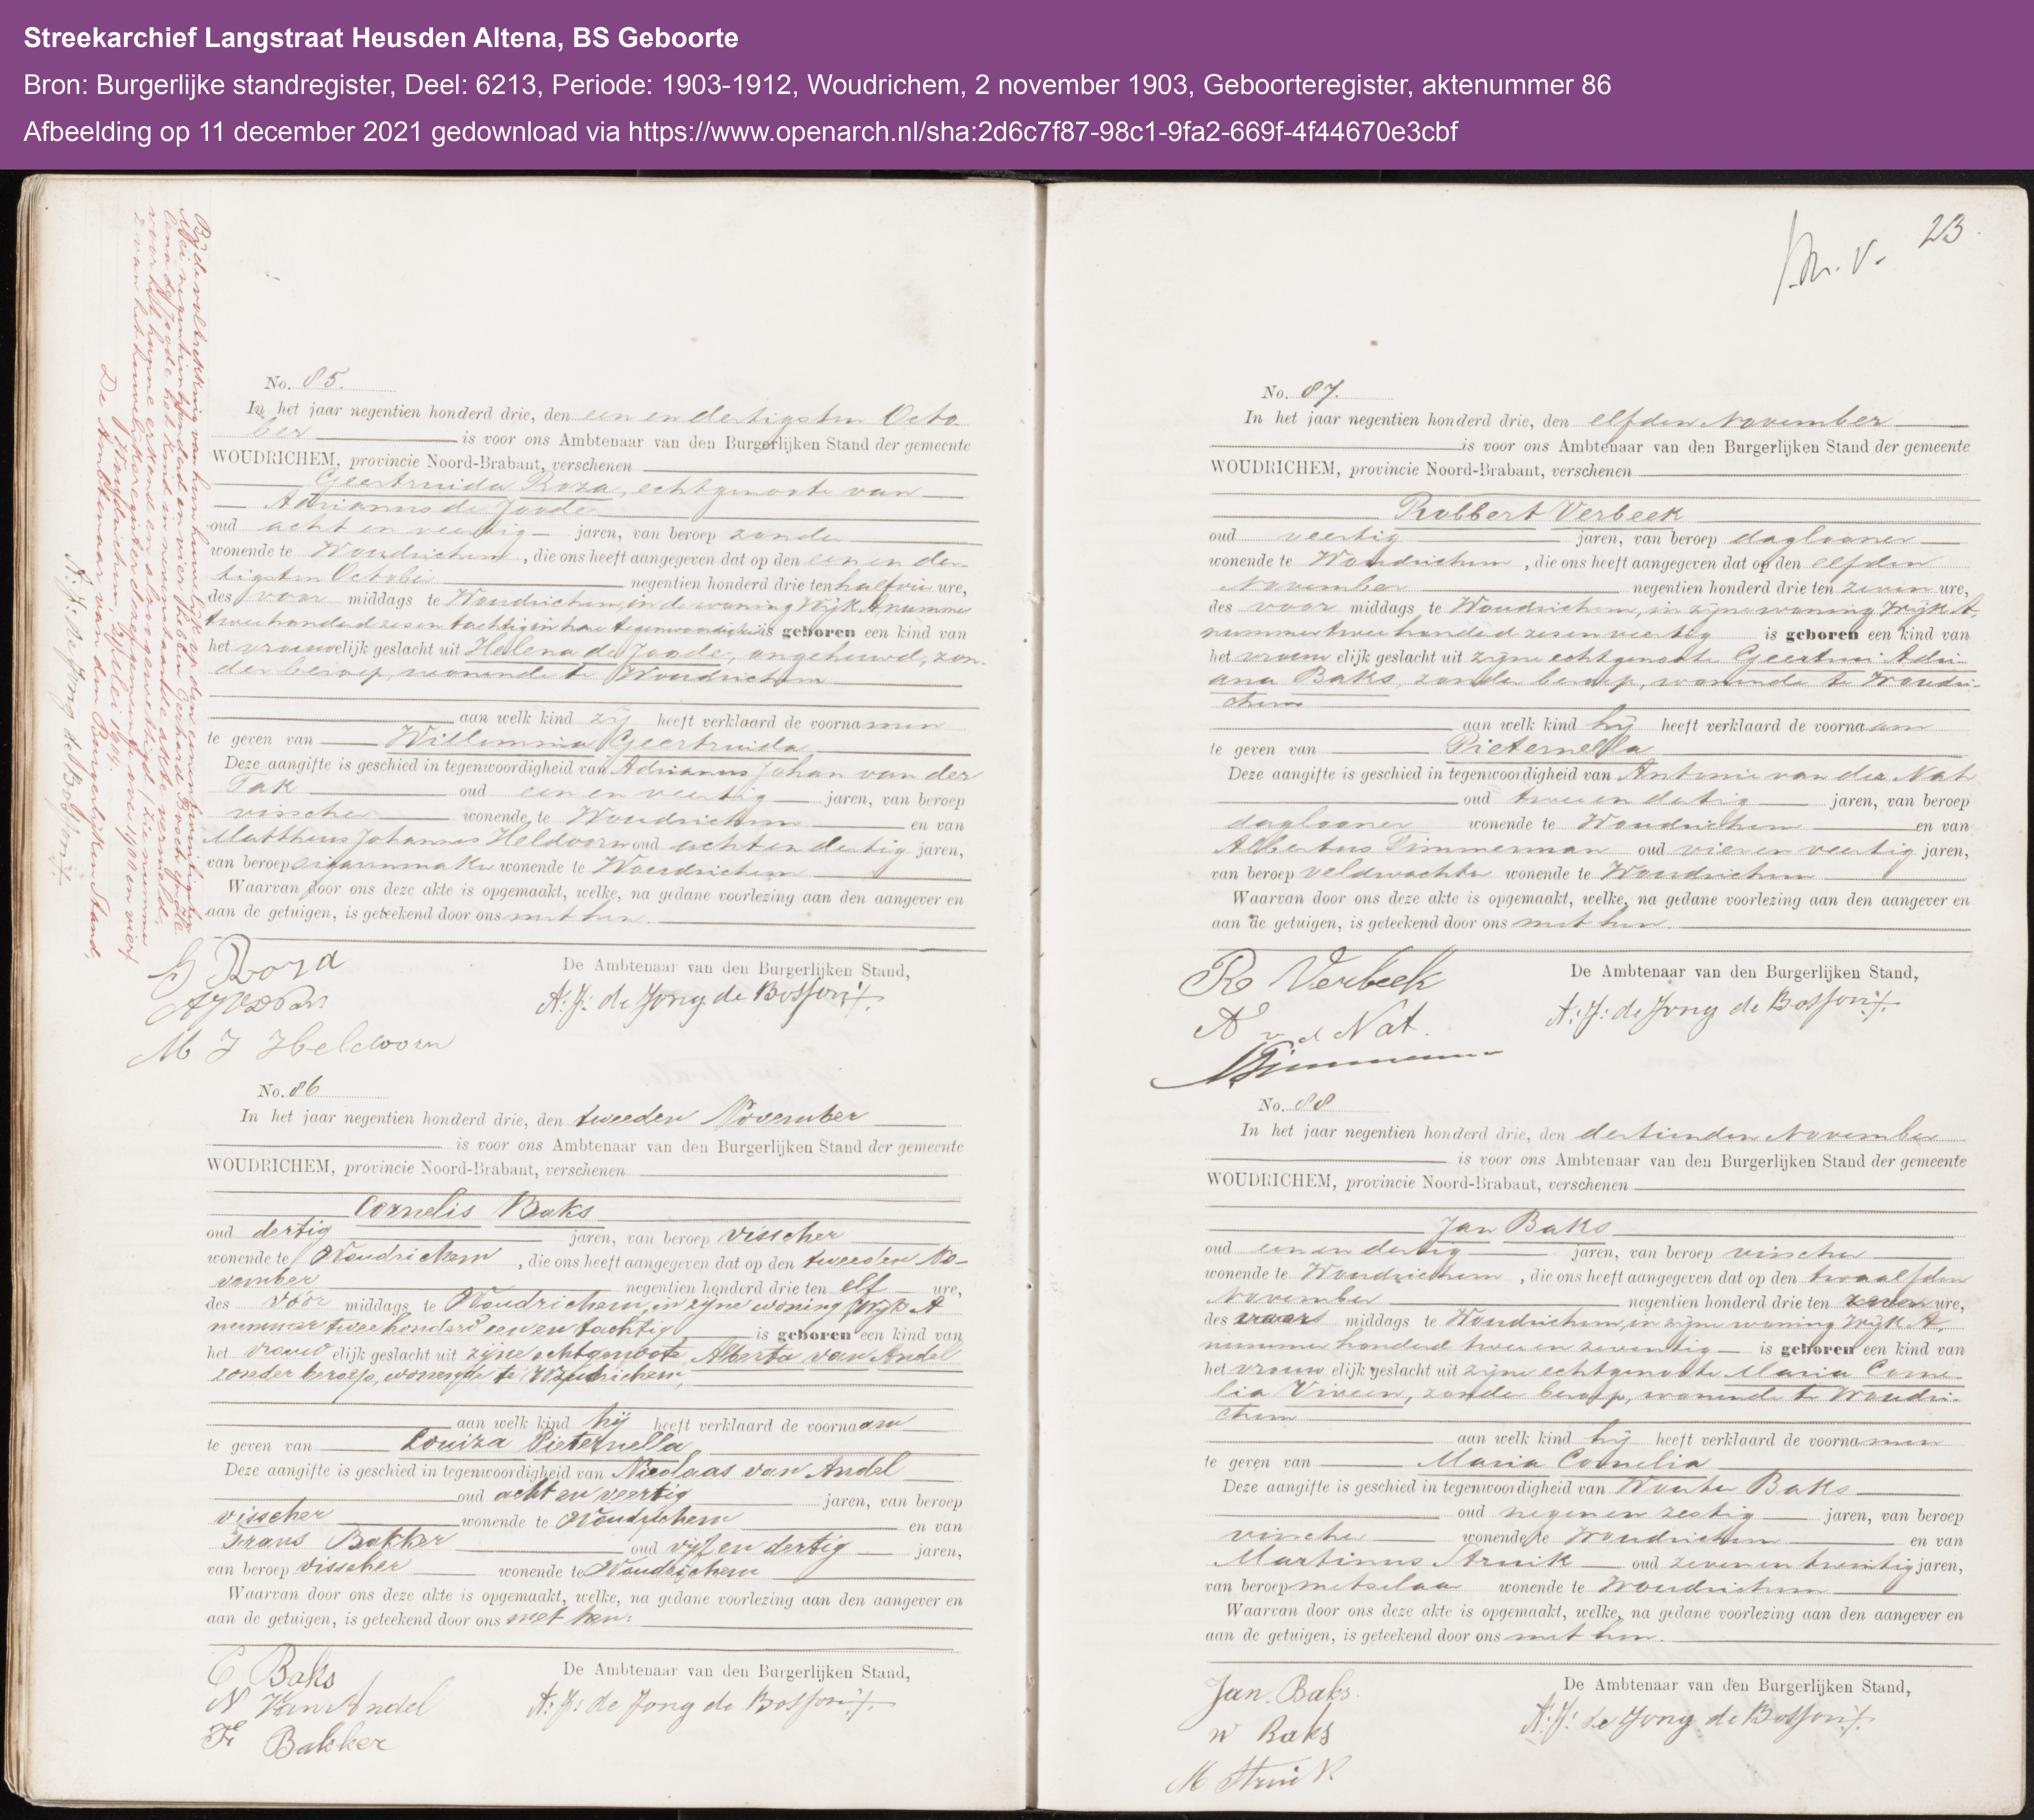 Streekarchief Langstraat Heusden Altena, BS Geboorte
Bron: Burgerlijke standregister, Deel: 6213, Periode: 1903-1912, Woudrichem, 2 november 1903, Geboorteregister, aktenummer 86
Afbeelding op 11 december 2021 gedownload via https://www.openarch.nl/sha:2d6c7f87-98c1-9fa2-669f-4f44670e3cbf
Bij de voltrekking van hun huwelijk op den
Mei negentienhonderd en vier hebben Gerhard Bosch en
lena de Joode het kind in nevenstaande akte vermeld,
voor het hunne erkend en alzoo gewettigd (Zie nummer
2 van het huwelijksregister dezer gemeente over 1900 en vier)
Woudrichem, Mei 1904.
De Ambtenaar van den Burgerlijken Stand,
A. J. de Jong de Bosson
No. 85.
In het jaar negentien honderd drie, den een en dertigsten Octo
ber is voor ons Ambtenaar van den Burgerlijken Stand der gemeente
WOUDRICHEM, provincie Noord-Brabant, verschenen
Geertruida Roza, echtgenoote van
Adrianus de Joode
oud acht en veertig jaren, van beroep zonder
wonende te Woudrichem, die ons heeft aangegeven dat op den een en der-
tigsten October negentien honderd drie ten half vier ure,
des voor middags te Woudrichem, in de woning Wijk A nummer
tweehonderd zes en tachtig in hare tegenwoordigheid is geboren een kind van
het vrouwelijk geslacht uit Helena de Joode, ongehuwd, zon-
der beroep, wonende te Woudrichem
aan welk kind zij heeft verklaard de voornamen
te geven van Willemina Geertruida
Deze aangifte is geschied in tegenwoordigheid van Adrianus Johan van der
Pak oud een en veertig jaren, van beroep
visscher wonende te Woudrichem en van
Mattheus Johannes Heldoorn oud acht en dertig jaren,
van beroep sigarenmaker wonende te Woudrichem
Waarvan door ons deze akte is opgemaakt, welke, na gedane voorlezing aan den aangever en
aan de getuigen, is geteekend door ons met hen.
De Ambtenaar van den Burgerlijken Stand,
G Roza
A. J. de Jong de Bosson
M J Heldoorn
No. 86
In het jaar negentien honderd drie, den tweeden November
is voor ons Ambtenaar van den Burgerlijken Stand der gemeente
WOUDRICHEM, provincie Noord-Brabant, verschenen
Cornelis Baks
oud dertig jaren, van beroep visscher
wonende te Woudrichem, die ons heeft aangegeven dat op den tweeden No-
vember negentien honderd drie ten elf ure,
des vóór middags te Woudrichem, in zijne woning Wijk A
nummer twee honderd een en tachtig is geboren een kind van
het vrouw elijk geslacht uit zijne echtgenoote Alberta van Andel
zonder beroep, wonende te Woudrichem,
aan welk kind hij heeft verklaard de voornaam
te geven van Louiza Pieternella
Deze aangifte is geschied in tegenwoordigheid van Nicolaas van Andel
oud acht en veertig jaren, van beroep
visscher wonende te Woudrichem en van
Frans Bakker oud vijf en dertig jaren,
van beroep visscher wonende te Woudrichem
Waarvan door ons deze akte is opgemaakt, welke, na gedane voorlezing aan den aangever en
aan de getuigen, is geteekend door ons met hen.
De Ambtenaar van den Burgerlijken Stand,
C Baks
N Van Andel
A. J. de Jong de Bosson
F Bakker
23
No. 87.
In het jaar negentien honderd drie, den elfden November
is voor ons Ambtenaar van den Burgerlijken Stand der gemeente
WOUDRICHEM, provincie Noord-Brabant, verschenen
Robbert Verbeek
oud veertig jaren, van beroep daglooner
wonende te Woudrichem, die ons heeft aangegeven dat op den elfden
November negentien honderd drie ten zeven ure,
des voor middags te Woudrichem, in zijne woning Wijk A,
nummer twee honderd zes en veertig is geboren een kind van
het vrouw elijk geslacht uit zijne echtgenoote Geertrui Adri-
ana Baks, zonder beroep, wonende te Woudri-
chem
aan welk kind hij heeft verklaard de voornaam
te geven van Pieternella
Deze aangifte is geschied in tegenwoordigheid van Antonie van der Nat
oud twee en dertig jaren, van beroep
daglooner wonende te Woudrichem en van
Albertus Timmerman oud vier en veertig jaren,
van beroep veldwachter wonende te Woudrichem
Waarvan door ons deze akte is opgemaakt, welke, na gedane voorlezing aan den aangever en
aan de getuigen, is geteekend door ons met hen.
De Ambtenaar van den Burgerlijken Stand,
R Verbeek
A v d Nat.
A. J. de Jong de Bosson
No. 88
In het jaar negentien honderd drie, den dertienden November
is voor ons Ambtenaar van den Burgerlijken Stand der gemeente
WOUDRICHEM, provincie Noord-Brabant, verschenen
Jan Baks
oud een en dertig jaren, van beroep visscher
wonende te Woudrichem, die ons heeft aangegeven dat op den twaalfden
November negentien honderd drie ten zeven ure,
des middags te Woudrichem, in zijne woning Wijk A,
nummer honderd twee en zeventig is geboren een kind van
het vrouw elijk geslacht uit zijne echtgenoote Maria Corne-
lia Viveen, zonder beroep, wonende te Woudri-
chem
aan welk kind hij heeft verklaard de voornamen
te geven van Maria Cornelia
Deze aangifte is geschied in tegenwoordigheid van Wouter Baks
oud negen en zestig jaren, van beroep
visscher wonende te Woudrichem en van
Martinus Struik oud zeven en twintig jaren,
van beroep metselaar wonende te Woudrichem
Waarvan door ons deze akte is opgemaakt, welke, na gedane voorlezing aan den aangever en
aan de getuigen, is geteekend door ons met hen.
De Ambtenaar van den Burgerlijken Stand,
Jan. Baks.
W Baks
A. J. de Jong de Bosson
M Struik